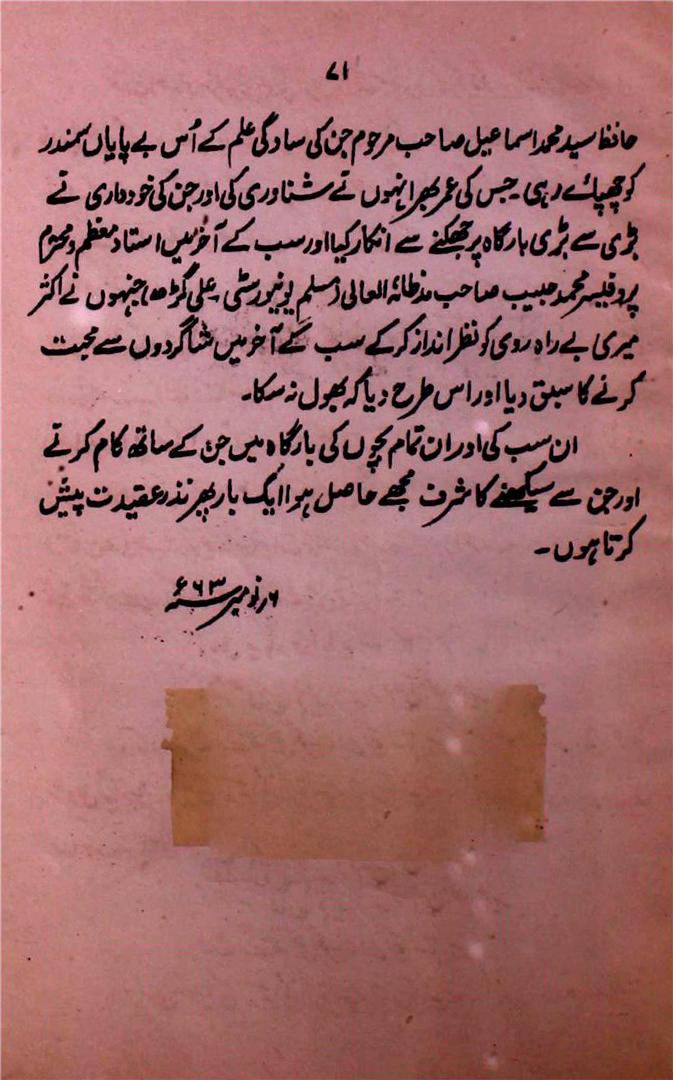 ۷۱
حافظ سید محمد اسماعیل صاحب مرحوم جن کی سادگی علم کے اُس بے پایاں سمندر
کو چھپائے رہی۔ جس کی عمر بھر انہوں نے شناوری کی اور جن کی خودداری نے
بڑی سے بڑی بارگاہ پر جھکنے سے انکار کیا اور سب کے آخر میں استاد معظم و محترم
پروفیسر محمد حبیب صاحب مدظلہٗ العالی (مسلم یونیورسٹی۔ علی گڑھ) جنہوں نے اکثر
میری بے راہ روی کو نظر انداز کرکے سب کے آخر میں شاگردوں سے محبت
کرنے کا سبق دیا اور اس طرح دیا کہ بھول نہ سکا۔
ان سب کی اور ان تمام بچوں کی بارگاہ میں جن کے ساتھ کام کرنے
اور جن سے سیکھنے کا شرف مجھے حاصل ہوا ایک بار پھر نذر عقیدت پیش
کرتا ہوں۔
۶؍ نومبر سنہ ۶۳ء